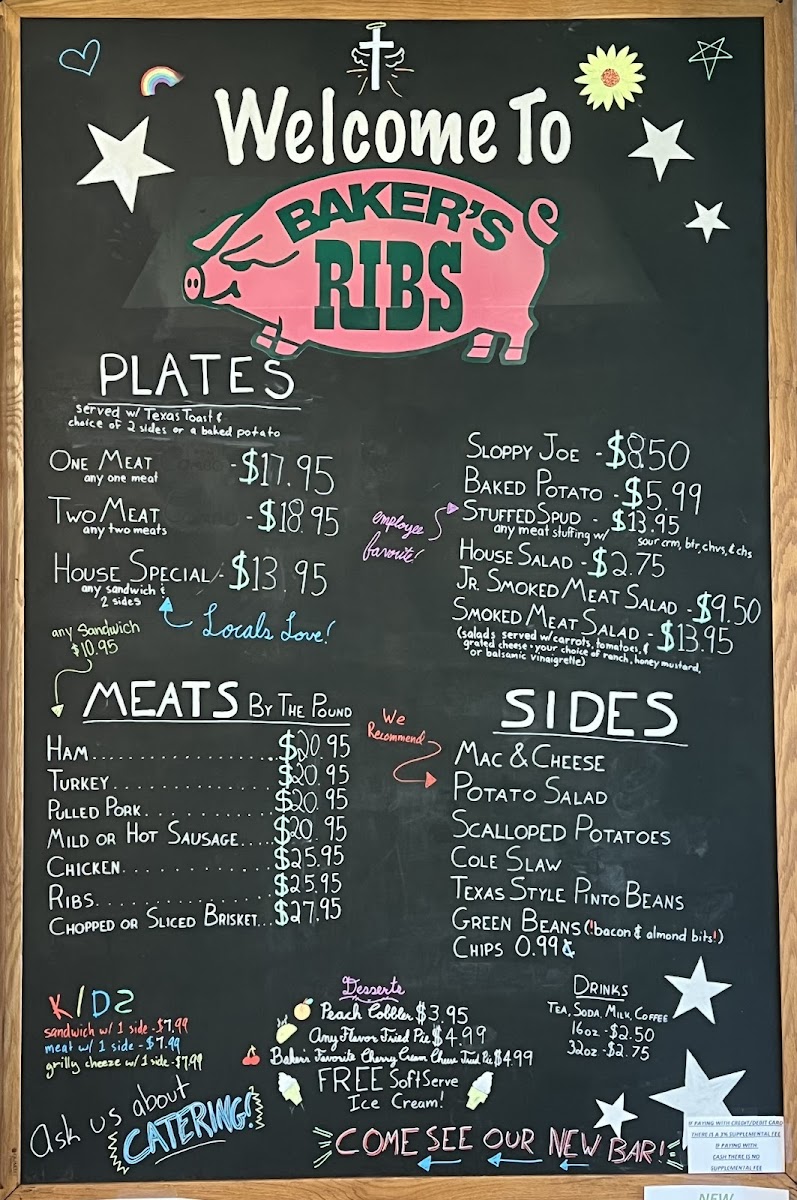 Welcome To
BAKER'S
RIBS
PLATES
served w/ Texas Toast &
choice of 2 sides or a baked potato
ONE MEAT - $17.95
any one meat
TWO MEAT - $18.95
any two meats
HOUSE SPECIAL - $13.95
any sandwich &
2 sides
Locals Love!
any sandwich
$10.95
SLOPPY JOE - $8.50
BAKED POTATO - $5.99
employee
favorite!
STUFFED SPUD - $13.95
any meat stuffing w/ sour crm, btr, chvs, & chs
HOUSE SALAD - $2.75
JR. SMOKED MEAT SALAD - $9.50
SMOKED MEAT SALAD - $13.95
(salads served w/ carrots, tomatoes, &
grated cheese • your choice of ranch, honey mustard,
or balsamic vinaigrette)
MEATS BY THE POUND
HAM.....................$20.95
TURKEY..................$20.95
PULLED PORK.............$20.95
MILD OR HOT SAUSAGE....$20.95
CHICKEN.................$25.95
RIBS....................$25.95
CHOPPED OR SLICED BRISKET...$27.95
We
Recommend
SIDES
MAC & CHEESE
POTATO SALAD
SCALLOPED POTATOES
COLE SLAW
TEXAS STYLE PINTO BEANS
GREEN BEANS (!bacon & almond bits!)
CHIPS 0.99¢
KIDZ
sandwich w/ 1 side - $7.99
meat w/ 1 side - $7.99
grilly cheeze w/ 1 side - $7.99
Desserts
Peach Cobbler $3.95
Any Flavor Fried Pie $4.99
Baker's Favorite Cherry Cream Cheese Fried Pie $4.99
FREE SoftServe
Ice Cream!
DRINKS
TEA, SODA, MILK, COFFEE
16oz - $2.50
32oz - $2.75
Ask us about
CATERING!
COME SEE OUR NEW BAR!
IF PAYING WITH CREDIT/DEBIT CARD
THERE IS A 3% SUPPLEMENTAL FEE
IF PAYING WITH
CASH THERE IS NO
SUPPLEMENTAL FEE
NEW